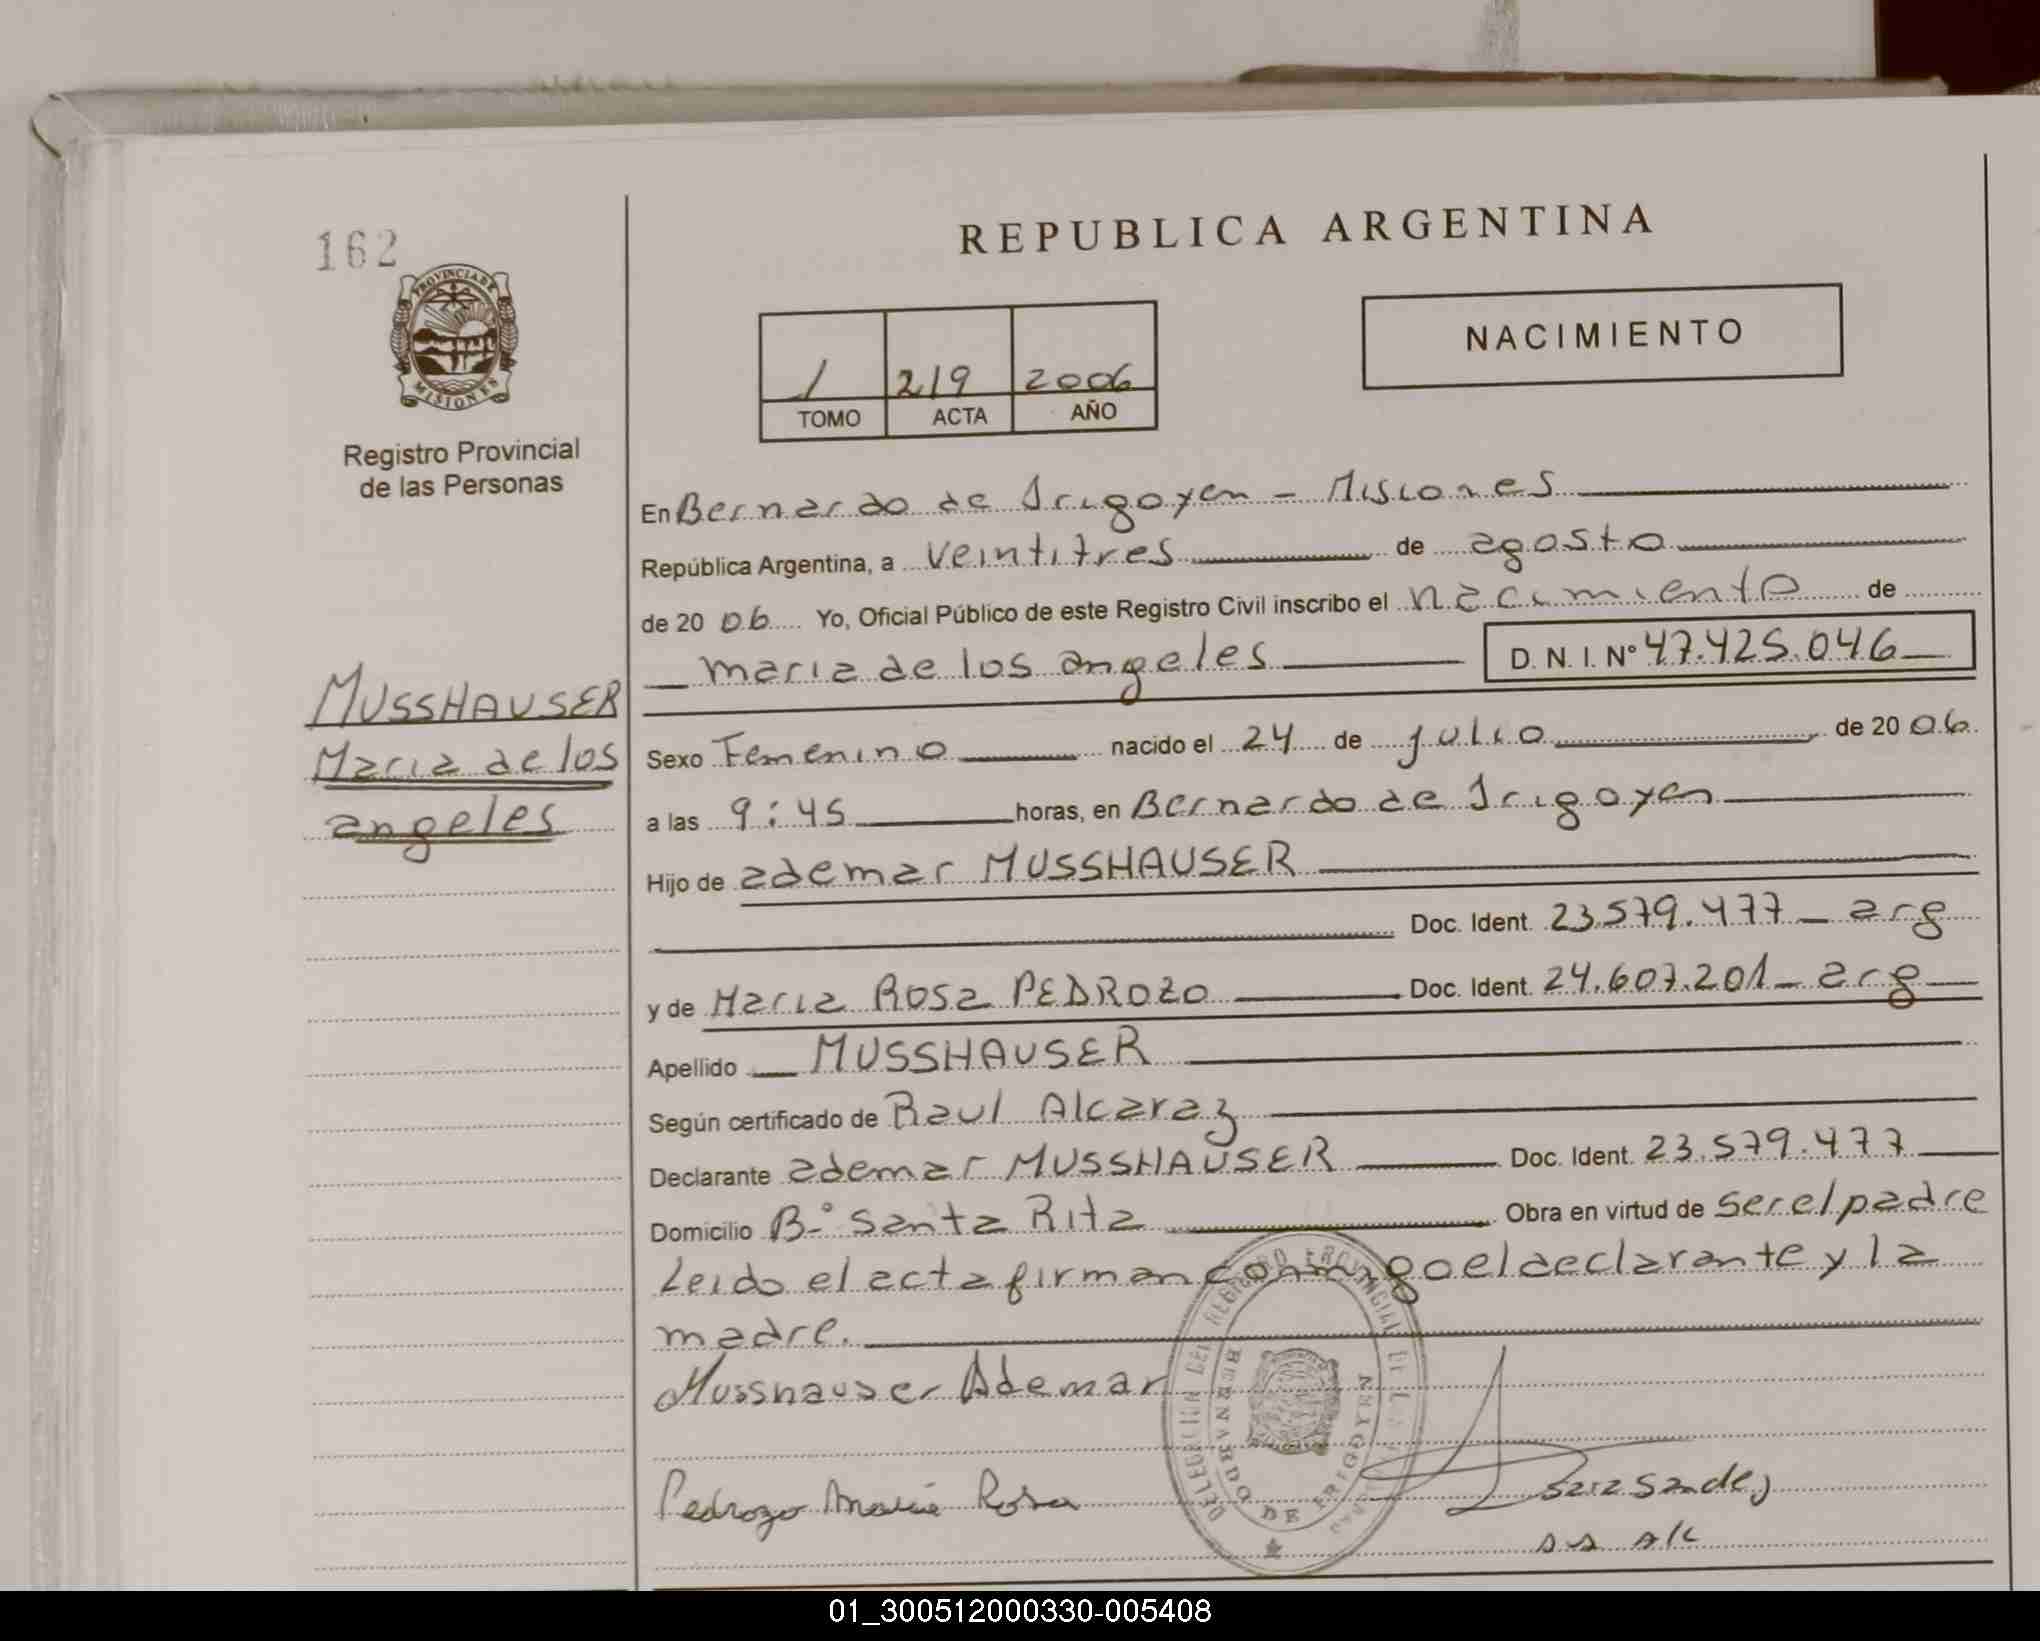 162
REPUBLICA ARGENTINA
PROVINCIA DE
MISIONES
Registro Provincial
de las Personas
1 219 2006
TOMO ACTA AÑO
NACIMIENTO
En Bernardo de Irigoyen - Misiones
República Argentina, a veintitres de agosto
de 20 06 Yo, Oficial Público de este Registro Civil inscribo el nacimiento de
maria de los angeles D. N. I. Nº 47.425.046
MUSSHAUSER
Maria de los
angeles
Sexo Femenino nacido el 24 de julio de 20 06
a las 9:45 horas, en Bernardo de Irigoyen
Hijo de ademar MUSSHAUSER
Doc. Ident. 23.579.477 - arg
y de Maria Rosa PEDROZO Doc. Ident. 24.607.201 - arg
Apellido MUSSHAUSER
Según certificado de Raul Alcaraz
Declarante ademar MUSSHAUSER Doc. Ident. 23.579.477
Domicilio B-º Santa Rita Obra en virtud de ser el padre
Leido el acta firman conmigo el declarante y la
madre.
Musshauser Ademar
Pedrozo Maria Rosa
DELEGACION DEL REGISTRO PROVINCIAL DE LAS
BERNARDO DE IRIGOYEN
01_300512000330-005408